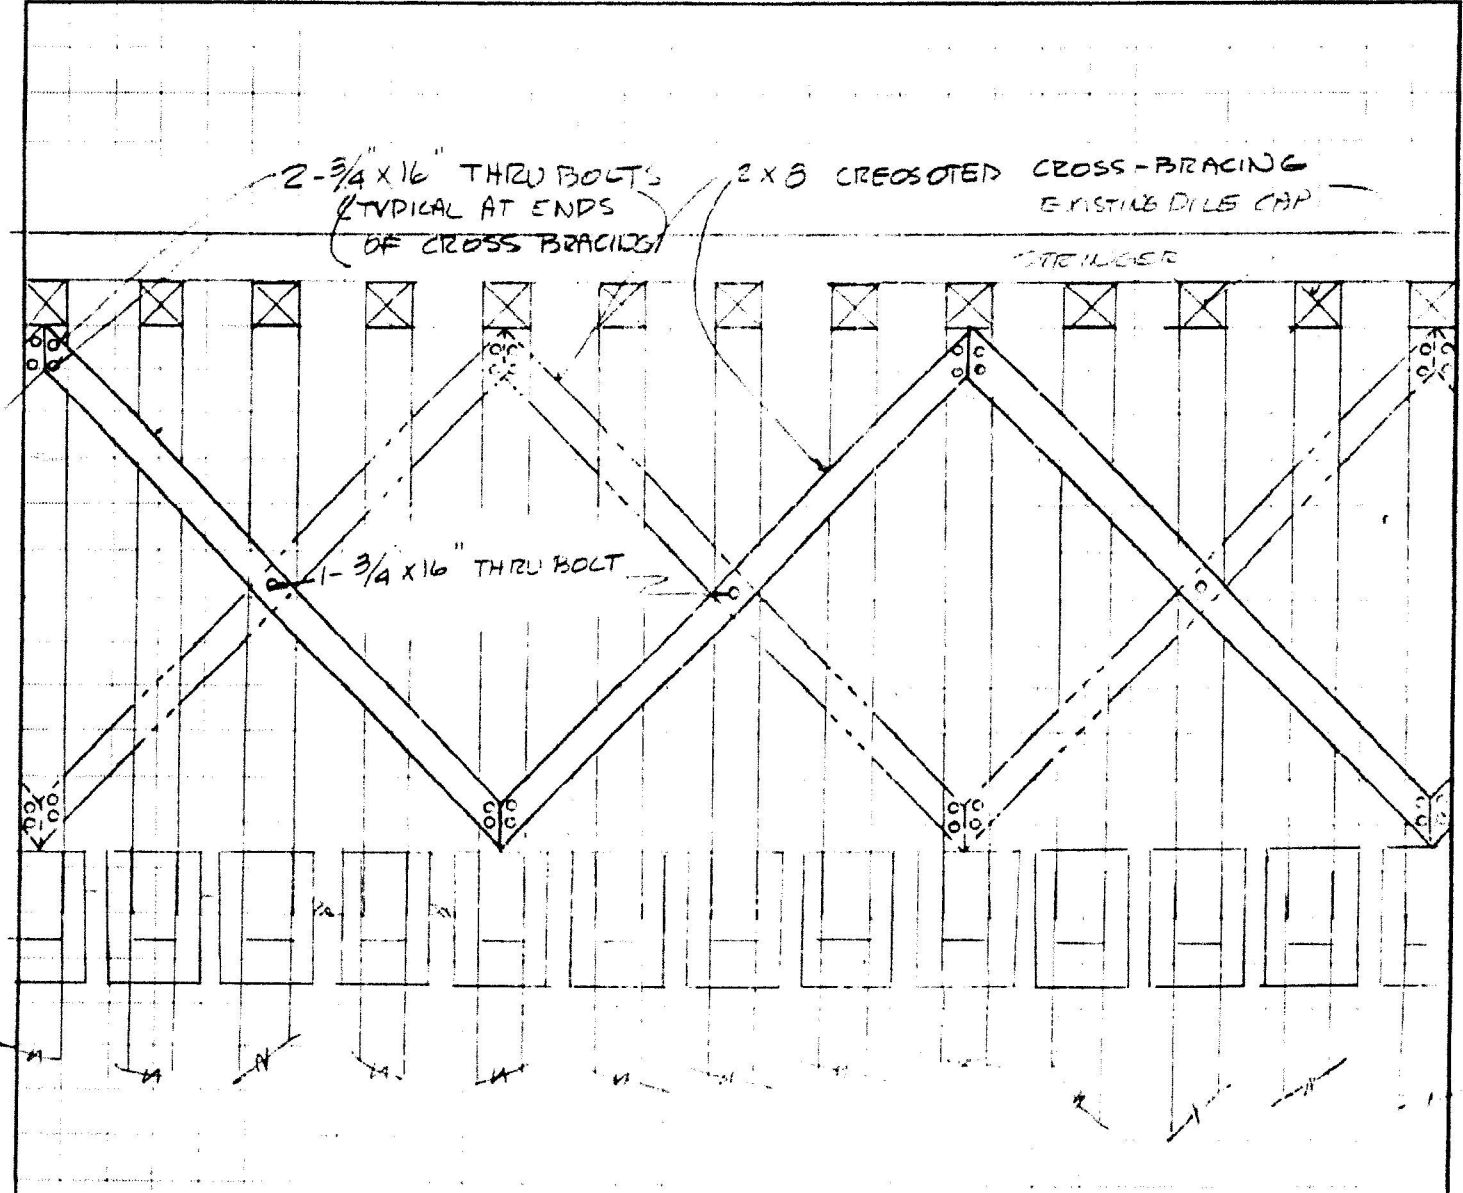 2-3/4" x 16" THRU BOLTS
(TYPICAL AT ENDS
OF CROSS BRACING)
2 x 8 CREOSOTED CROSS-BRACING
EXISTING PILE CAP
STRINGER
1-3/4 x 16" THRU BOLT